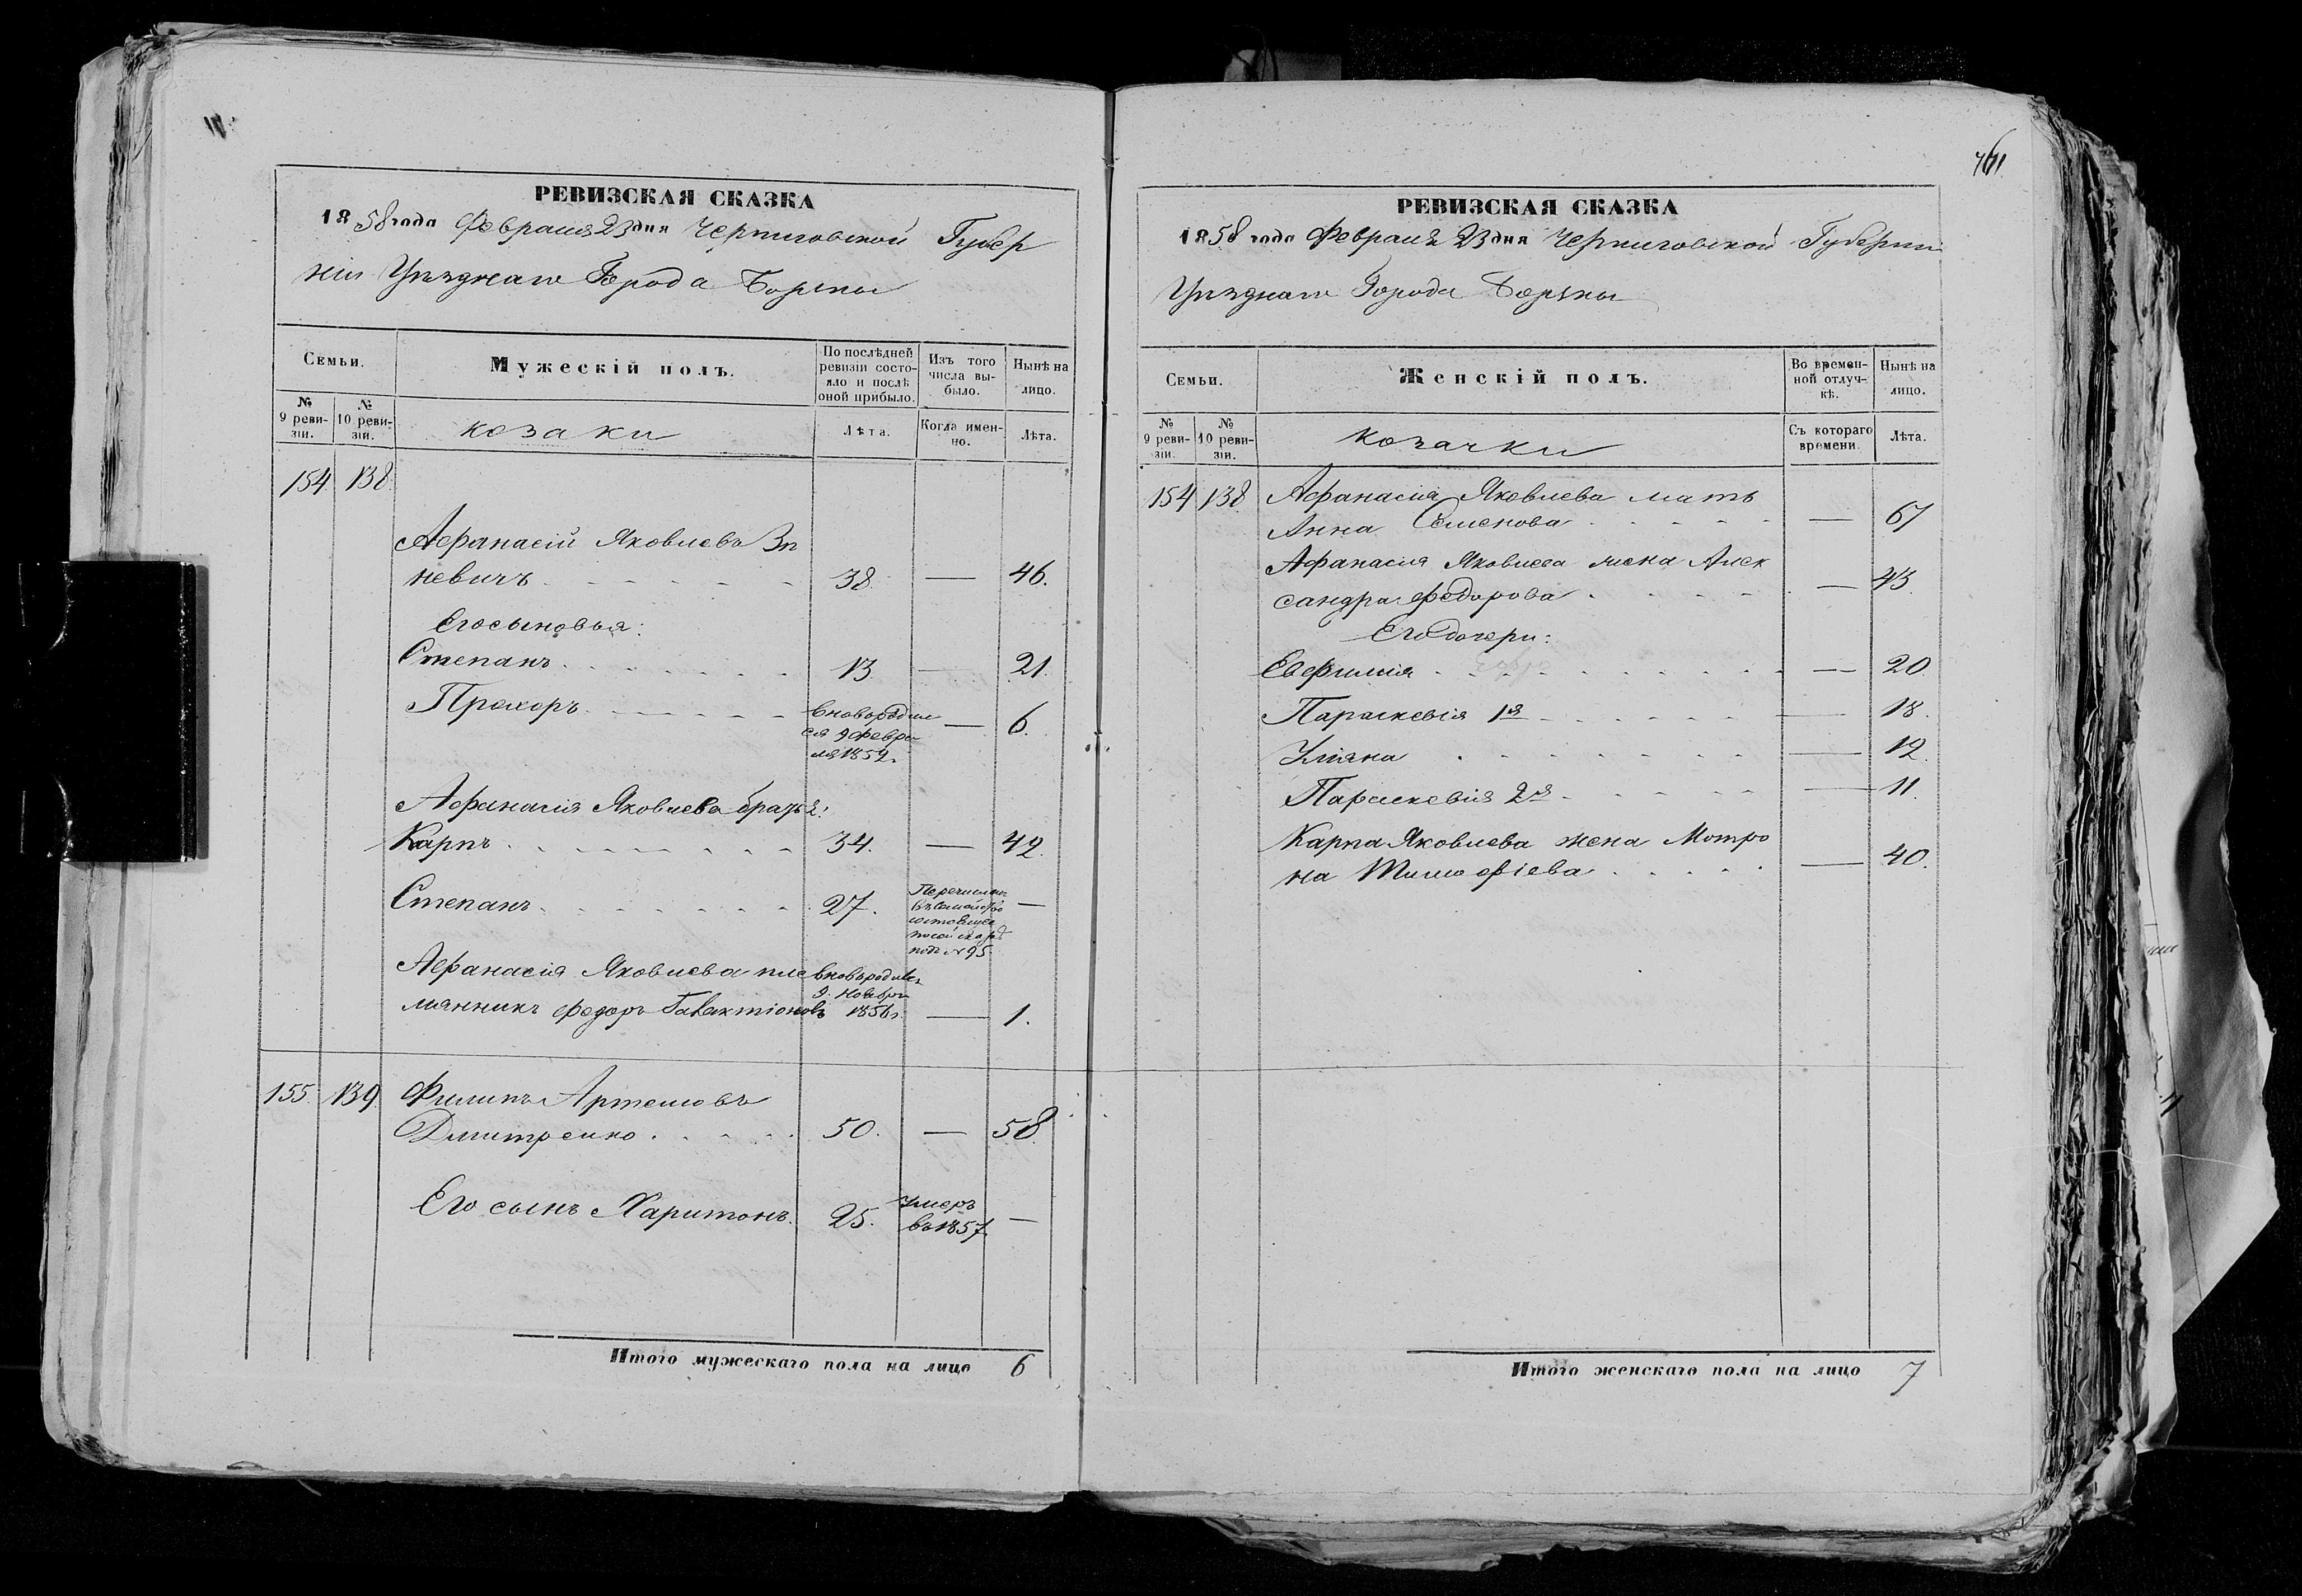 РЕВИЗСКАЯ СКАЗКА
1858 года Февраля 23 дня Черниговской Губер
ніи Уѣзднаго Города Борзны
Семьи.
Мужескій полъ.
По послѣдней ревизіи состояло и послѣ оной прибыло.
Изъ того числа выбыло.
Нынѣ на лицо.
№ 9 ревизіи.
№ 10 ревизіи.
козаки
Лѣта.
Когда именно.
Лѣта.
154 138
Афанасій Яковлевъ Зѣ
невичъ 38 — 46.
Его сыновья:
Степанъ 13 — 21.
Прохоръ вновь родил — 6.
ся 9 Февра
ля 1852.
Афанасія Яковлева братья:
Карпъ 34. — 42.
Степанъ 27. —
подъ № 95
Афанасія Яковлева пле вновь родился
мянникъ Федоръ Галактіоновъ 9. Ноября 1856 г. — 1.
155. 139. Филипъ Артемовъ
Дмитренко 50. — 58.
Его сынъ Харитонъ 25. умеръ —
въ 1857.
Итого мужескаго пола на лицо 6
РЕВИЗСКАЯ СКАЗКА
1858 года Февраля 23 дня Черниговской Губерніи
Уѣзднаго Города Борзны
Семьи.
Женскій полъ.
Во временной отлучкѣ.
Нынѣ на лицо.
№ 9 ревизіи.
№ 10 ревизіи.
козачки
Съ котораго времени.
Лѣта.
154 138 Афанасія Яковлева мать
Анна Семенова — 67
Афанасія Яковлева жена Алек
сандра Федорова — 43.
Его дочери:
Евфимія — 20.
Параскевія 1я — 18.
Уліяна — 12.
Параскевія 2я — 11.
Карпа Яковлева жена Мотро
на Тимофіева — 40.
Итого женскаго пола на лицо 7